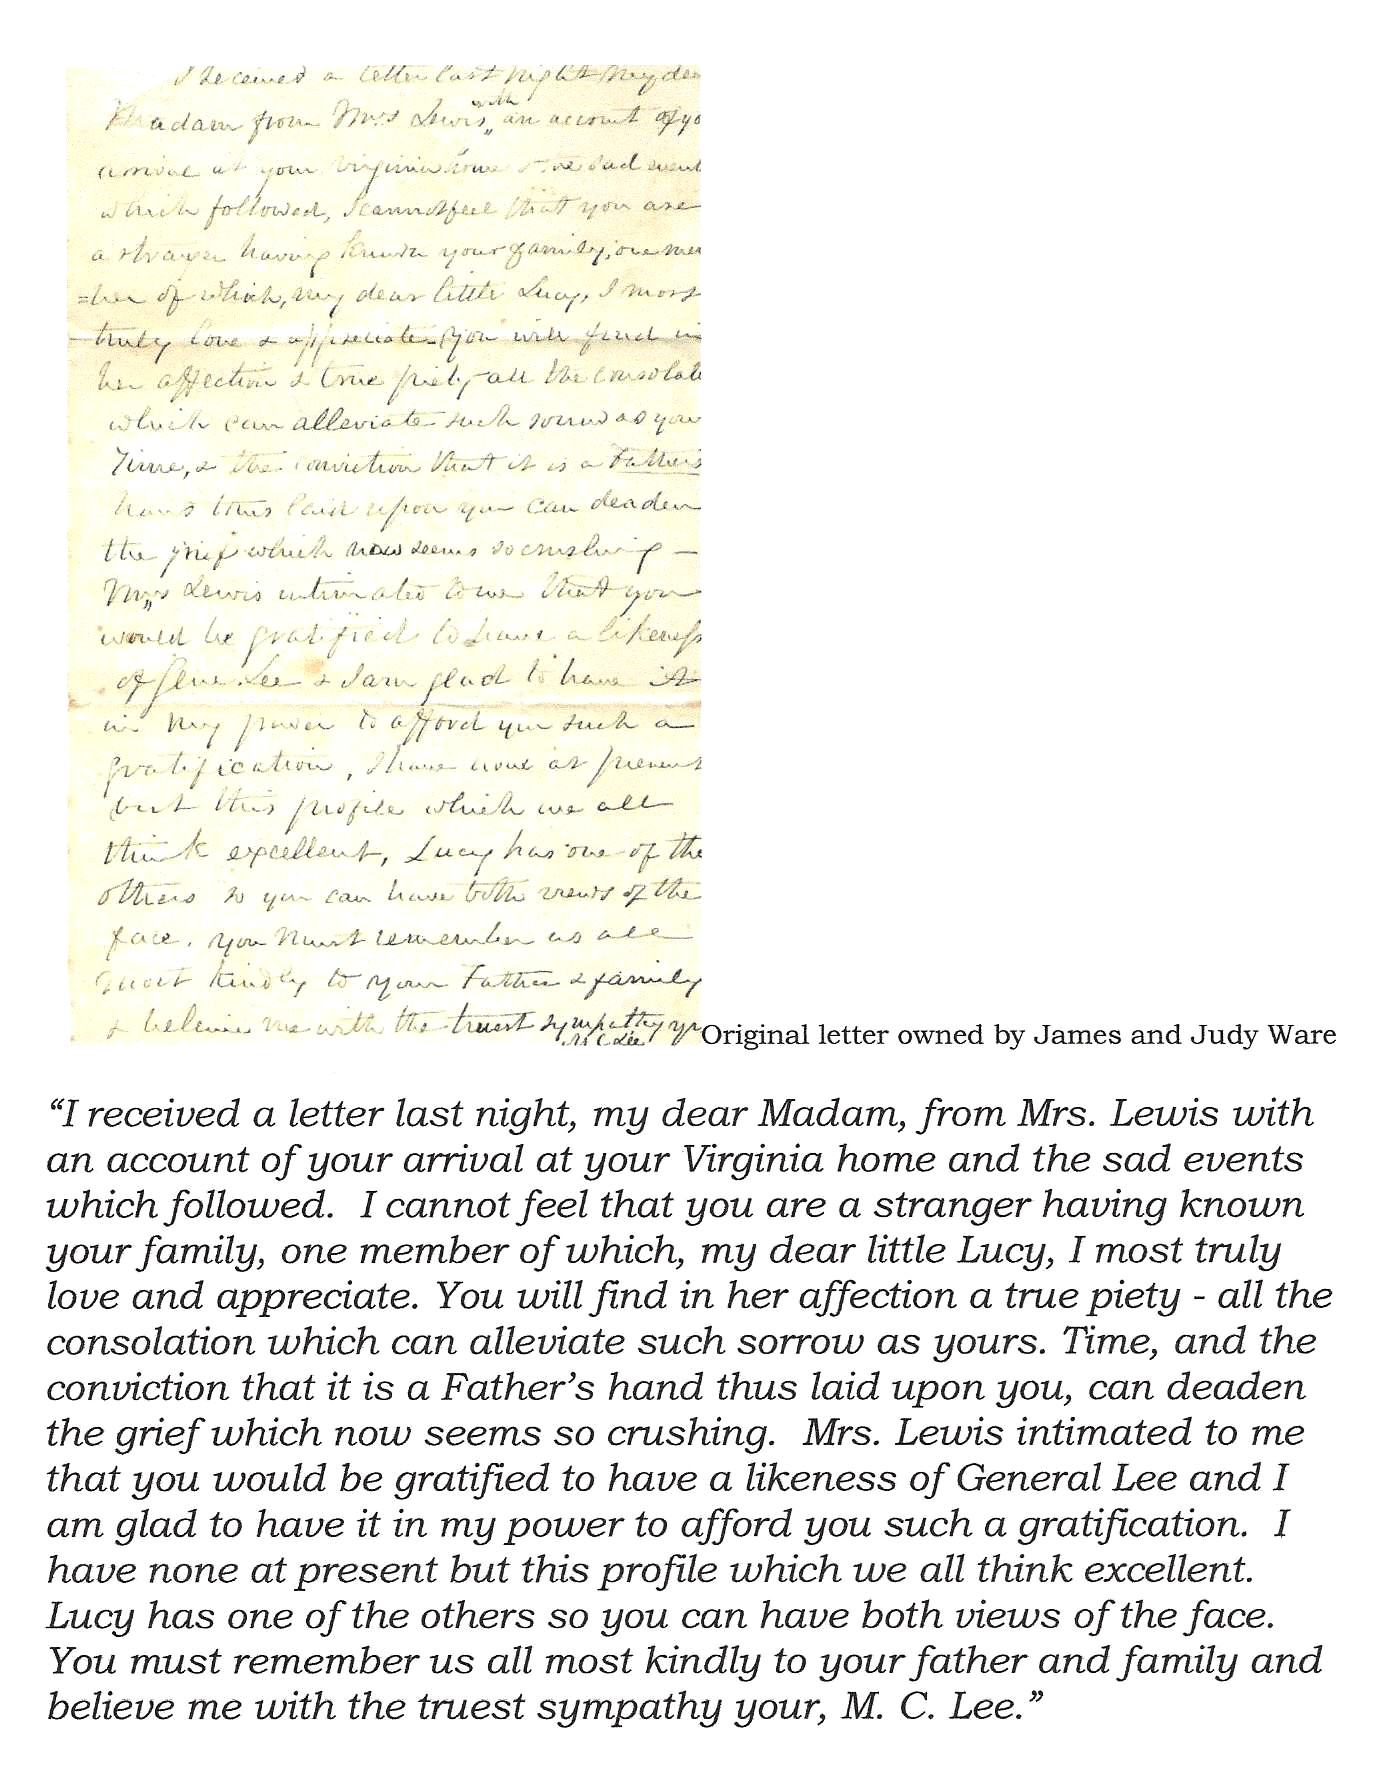 I received a letter last night My dea
Madam from Mrs Lewis, with an account of yo
arrival at your Virginia home & the sad event
which followed, I cannot feel that you are
a stranger having known your family, one mem
=ber of which, my dear little Lucy, I most
truly love & appreciate - You will find in
her affection & true piety - all the consolati
which can alleviate such sorrow as your
Time, & the conviction that it is a Father's
hand thus laid upon you can deaden
the grief which now seems so crushing —
Mrs Lewis intimated to me that you
would be gratified to have a likeness
of Genl Lee & I am glad to have it
in my power to afford you such a
gratification, I have none at present
but this profile which we all
think excellent, Lucy has one of the
others so you can have both views of the
face. You must remember us all
most kindly to your Father & family
& believe me with the truest sympathy yr
M C Lee
Original letter owned by James and Judy Ware
“I received a letter last night, my dear Madam, from Mrs. Lewis with
an account of your arrival at your Virginia home and the sad events
which followed.  I cannot feel that you are a stranger having known
your family, one member of which, my dear little Lucy, I most truly
love and appreciate. You will find in her affection a true piety - all the
consolation which can alleviate such sorrow as yours. Time, and the
conviction that it is a Father’s hand thus laid upon you, can deaden
the grief which now seems so crushing.  Mrs. Lewis intimated to me
that you would be gratified to have a likeness of General Lee and I
am glad to have it in my power to afford you such a gratification.  I
have none at present but this profile which we all think excellent.
Lucy has one of the others so you can have both views of the face.
You must remember us all most kindly to your father and family and
believe me with the truest sympathy your, M. C. Lee.”